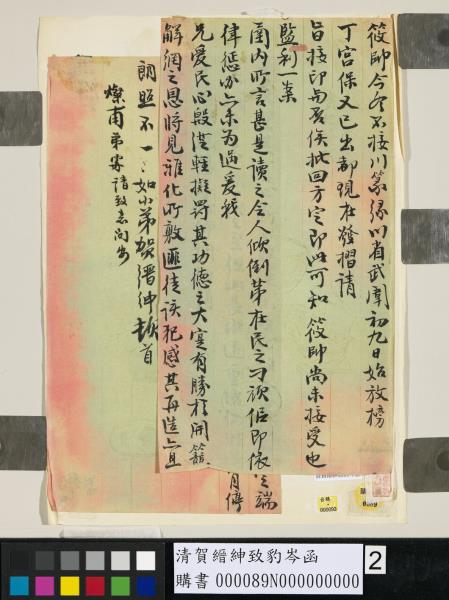 筱帥今冬不接川篆緣川省武闈初九日始放榜
丁宮保又已出都現在發摺請
旨接印而署侯批回方定即此可知筱帥尚未接受也
監利一案
函內所言甚是讀之令人傾倒第在民之刁頑但即
偉懲亦未為過爰我
兄愛民心殷從輕擬罰其功德之大寔有勝於開籠
解網之恩將見雅化所敷匪徒該犯感其再造已且
朗照不一一如小弟賀縉紳頓首
燦甫弟寄請致意問安
清賀縉紳致豹岑函
購書 000089N000000000
2